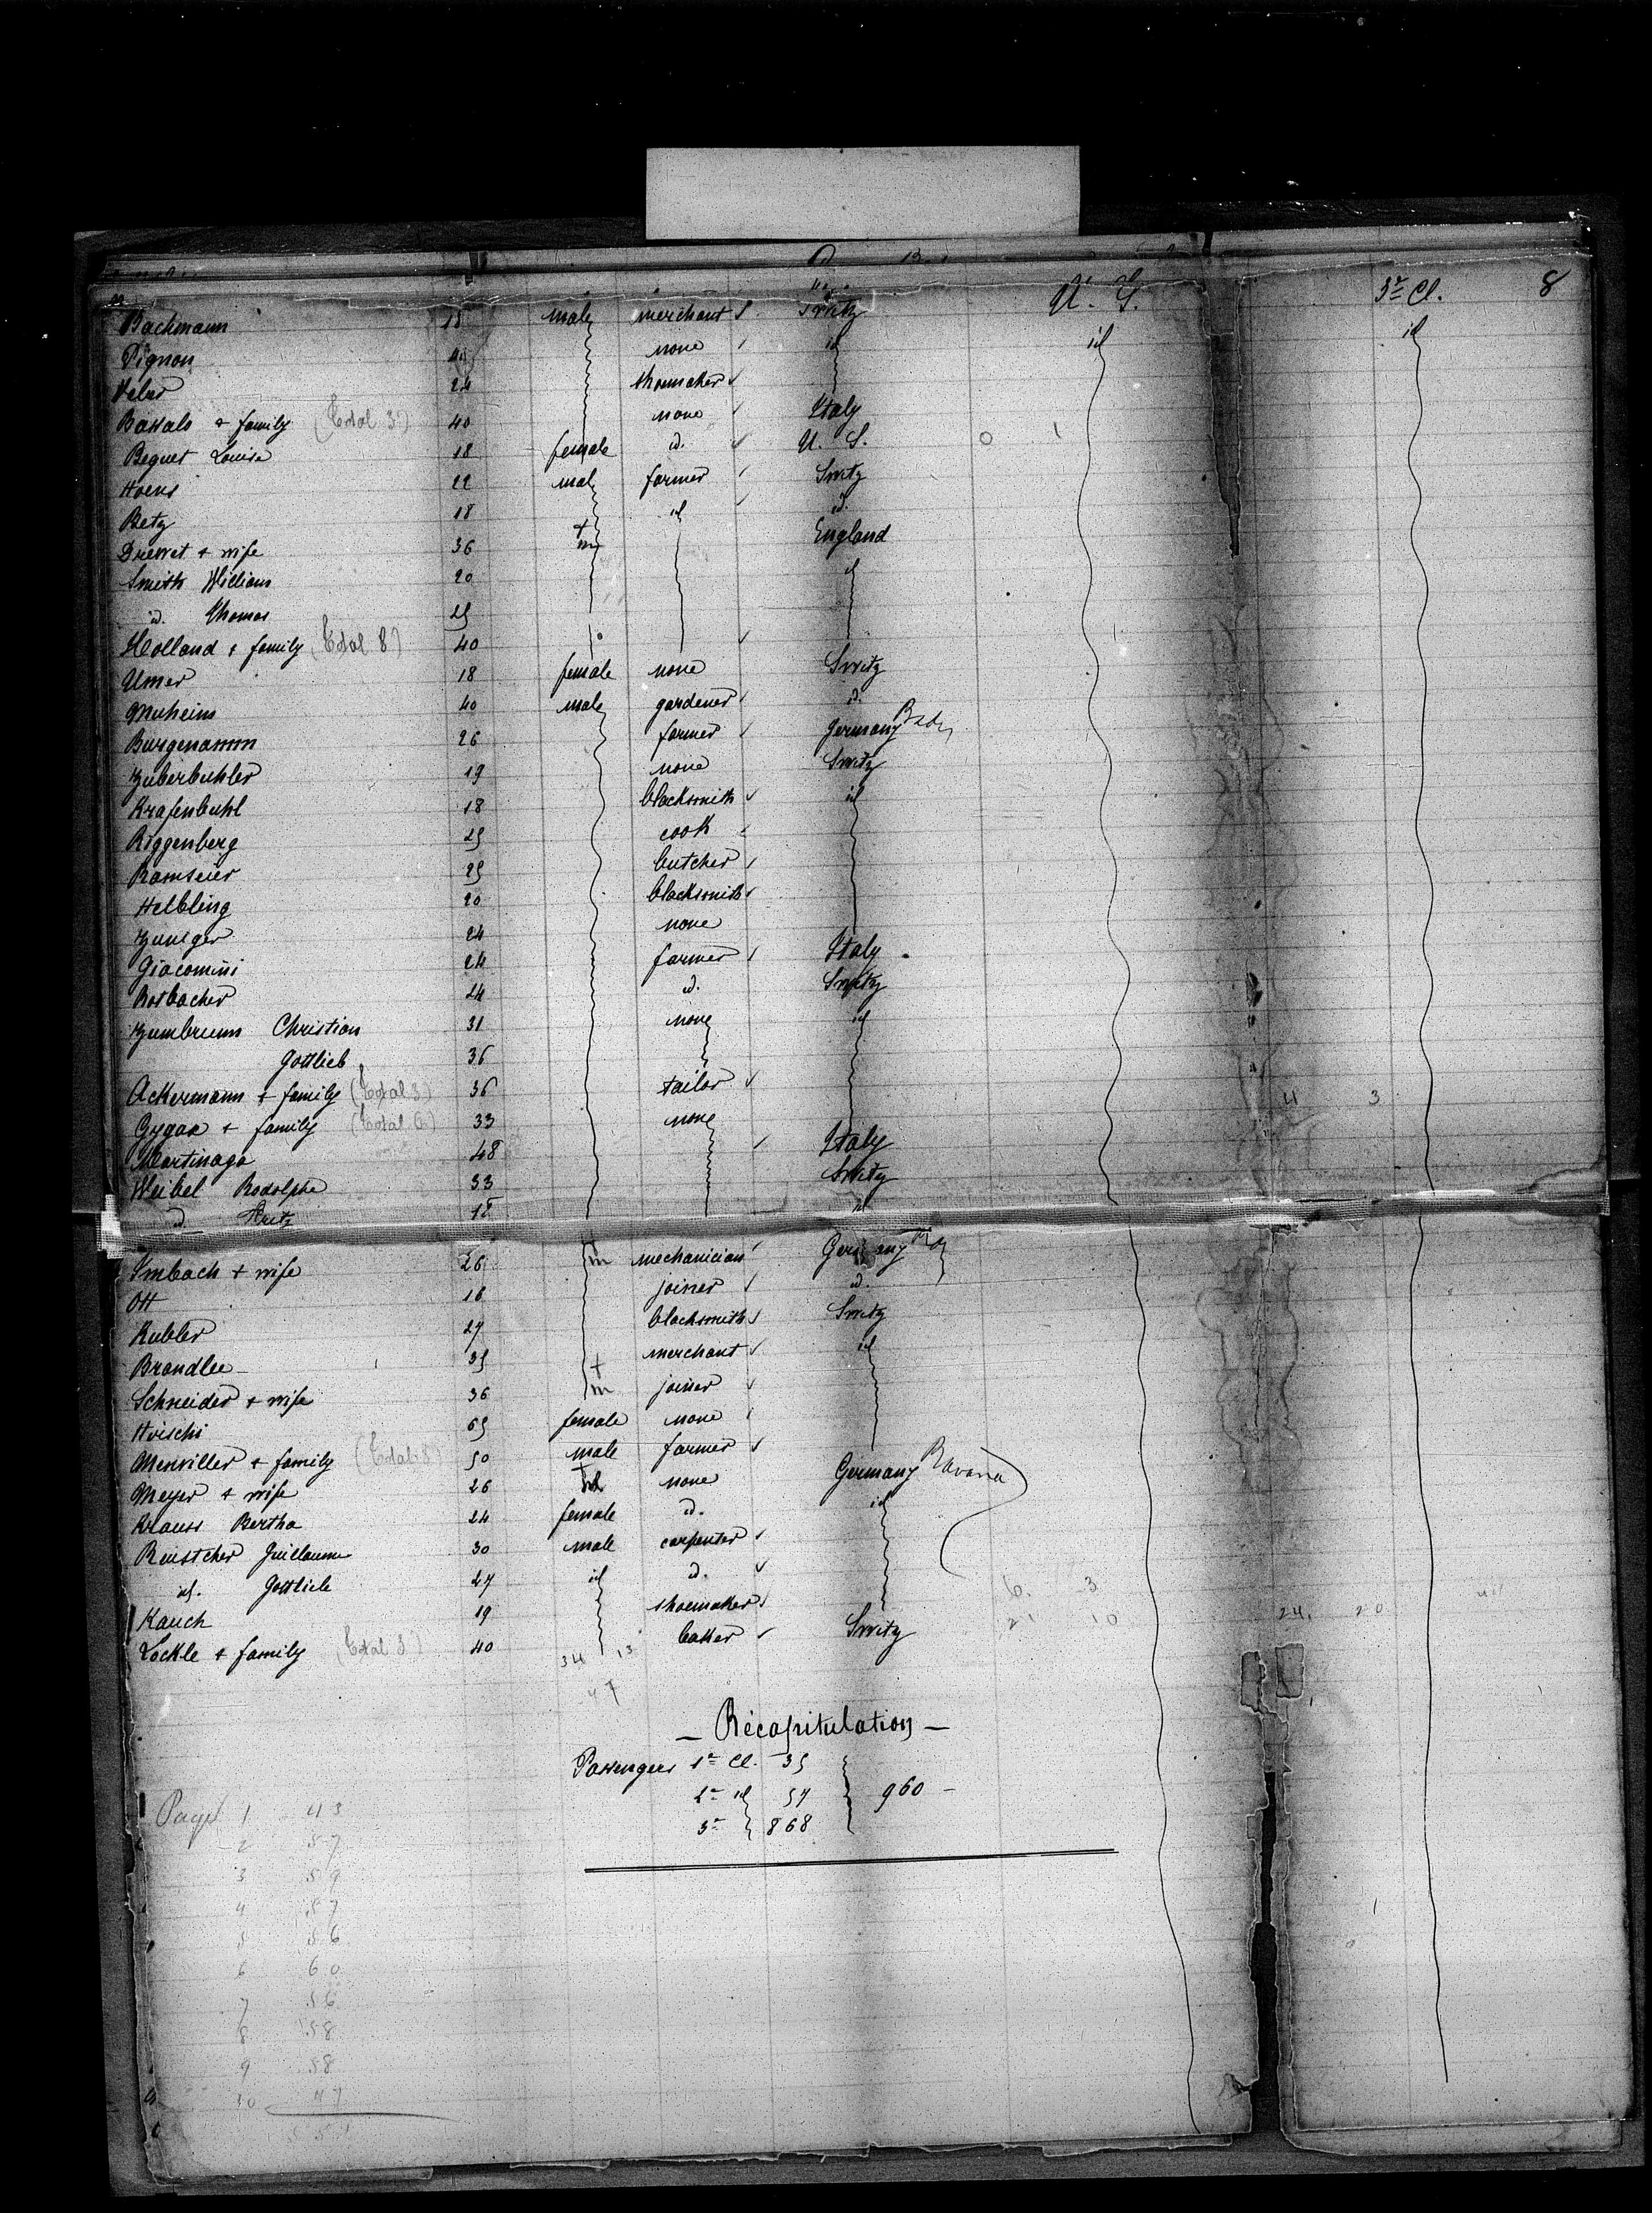 8
Bachmann 18 male merchant Switz U. S. 3e Cl.
Pignon none id id id
Weber 24 shoemaker
Bassalo + family (Total 3) 40 none Italy
Beguet Louise 18 female id. U. S. 0 1
22 male farmer Switz
Betz 18 id id.
Drewet + wife 36 + m England
Smith William 20 id
id. Thomas 25
Holland + family (Total 8) 40
Umer 18 female none Switz
Muheim 40 male gardener id.
Burgenamm 26 farmer Germany Bad
Zuberbuhler 19 none Switz
Krafenbuhl 18 blacksmith id
Riggenberg 25 cook
Ramseier 25 butcher
Helbling 20 blacksmith
Zuniger 24 none
Giacomini 24 farmer Italy
Rosbacher 24 id. Switz
Zumbrunn Christian 31 none id
Gottlieb 36
Ackermann + family (Total 3) 36 tailor 4 3
Gygax + family (Total 6) 33 none
Martinaga 48 Italy
Weibel Rodolphe 33 Switz
id. Fritz 18 id
Imbach + wife 26 m mechanician Germany
Ott 18 joiner id.
Kubler 27 blacksmith Switz
Brandlee 35 merchant id
Schneider + wife 36 + m joiner
Hirschi 65 female none
Menviller + family (Total 8) 50 male farmer
Meyer + wife 26 none Germany Bavaria
Krauss Bertha 24 female id. id
Reustcher Guillaume 30 male carpenter
id. Gottlieb 27 id id. 6. 3
Kauch 19 shoemaker 21 10 24. 20
Lockle + family (Total 3) 40 baker Switz
34 13
47
— Récapitulation —
Passengers 1e Cl. 35
2e id 57 960 —
3e 868
Page 1 43
2 57
3 59
4 57
5 56
6 60
7 56
8 58
9 58
10 47